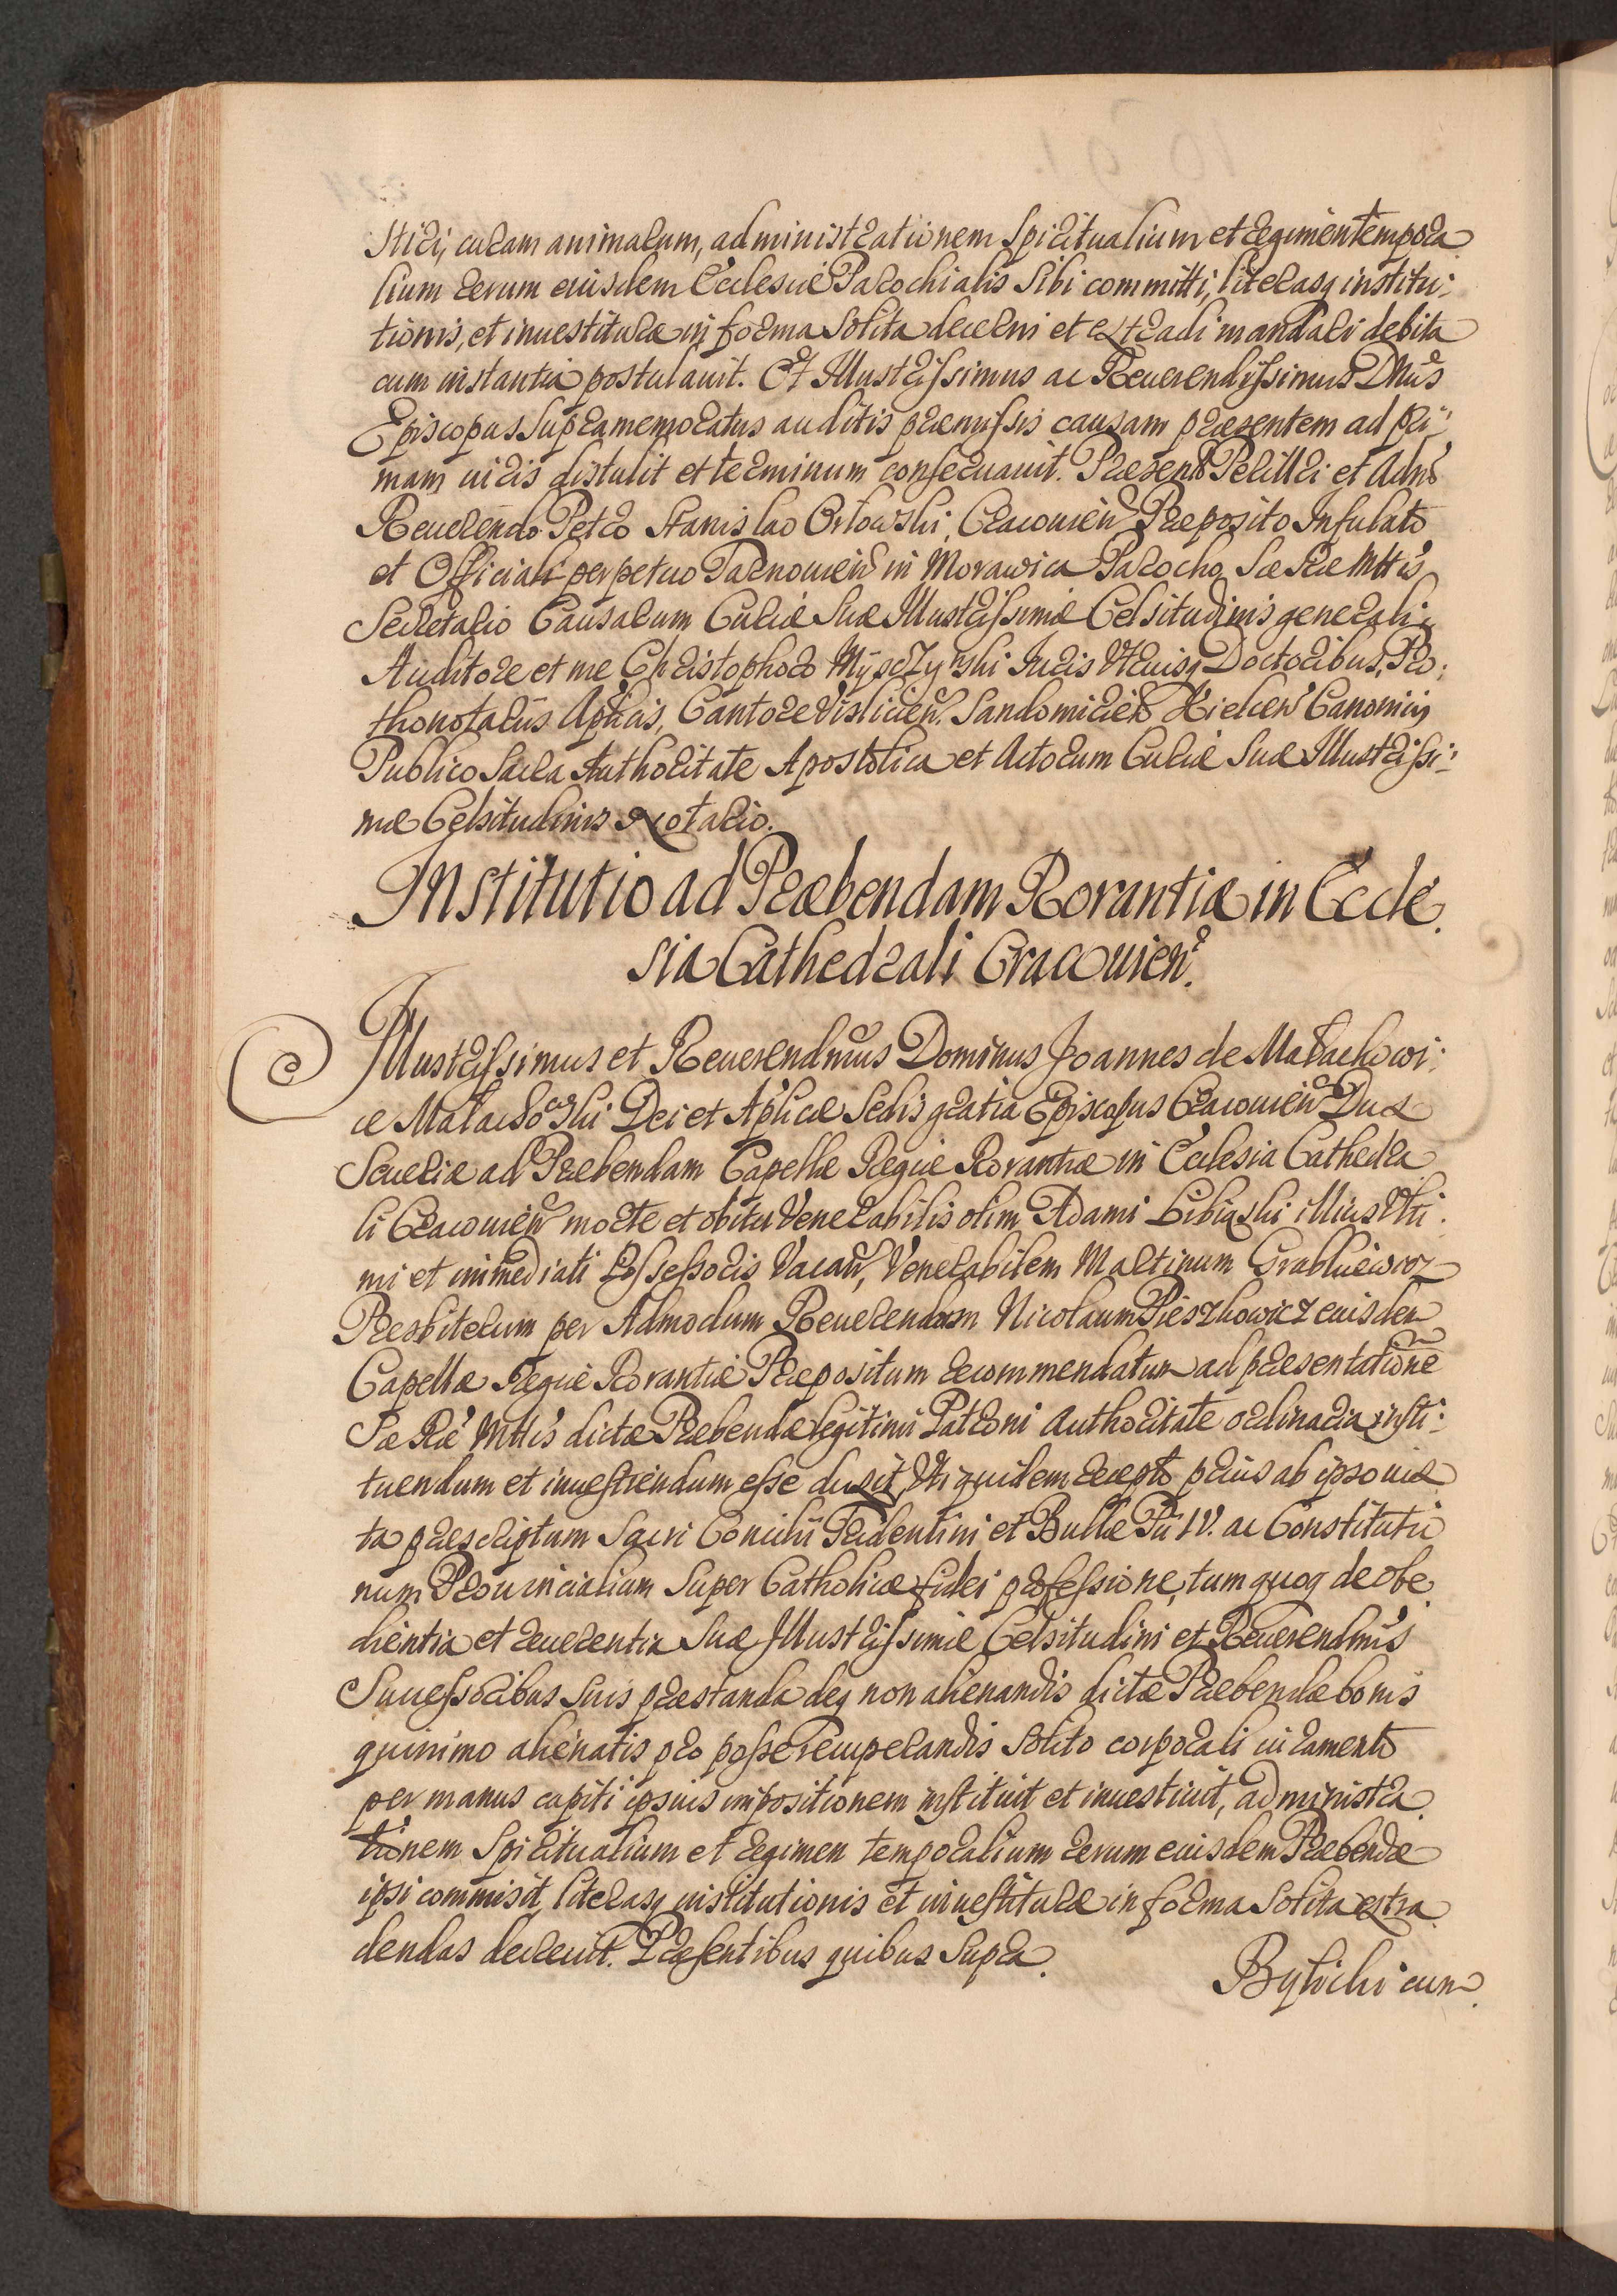 stiri, curam animarum, administrationem Spiritualium et regimen tempora
lium rerum eiusdem Ecclesiæ Parochialis Sibi committi, literasq institu:
tionis, et inuestituræ in forma Solita decerni et extradi mandari debita
cum instantia postulauit. Et Illustrissimus ac Reuerendissimus Dnus
Episcopus Supramemoratus auditis præmissis causam præsentem ad pri:
mam iuris distulit et terminum conseruauit. Præsentb Perillri et Adm
Reuerendo Petro Stanislao Orłowski, Cracouien Præposito Infulato
et Officiali perpetuo Tarnouien in Morawica Parocho Sæ Ræ Mttis
Secretario Causarum Curiæ Suæ Illustrissimæ Celsitudinis generali
Auditore et me Christophoro Myszynski Iuris Vtriusq Doctoribus, Pro:
thonotariis Aplicis, Cantore Vislicien. Sandomirien Kielcen Canonicis
Publico Sacra Authoritate Apostolica et Actorum Curiæ Suæ Illustrissi:
mæ Celsitudinis Notario.
Institutio ad Præbendam Rorantiæ in Eccle.
sia Cathedrali Cracouien.
Illustrissimus et Reuerendmus Dominus Joannes de Małachowi:
ce Małachowski Dei et Aplicæ Sedis gratia Episcopus Cracouien Dux
Seueriæ ad Præbendam Capellæ Regiæ Rorantiæ in Ecclesia Cathedra
li Cracouien morte et obitu Venerabilis olim Adami Bibiąski illius Vlti.
mi et immediati Possessoris Vacan, Venerabilem Martinum Grabkiewicz
Presbiterum per Admodum Reuerendum Nicolaum Pieszkowicz eiusdem
Capellæ Regiæ Rorantiæ Præpositum recommendatum ad præsentatione
Sæ Ræ Mttis dictæ Præbendæ legitimi Patroni authoritate ordinaria insti:
tuendum et inuestiendum esse duxit, Vti quidem recepto prius ab ipso iux
ta præscriptum Sacri Concilii Tridentini et Bullæ Pii IV. ac Constitutio
num Prouincialium Super Catholicæ fidei professione, tum quoq de obe.
dientia et reuerentia Suæ Illustrissimæ Celsitudini et Reuerendmis
Successoribus Suis præstanda deq non alienandis dictæ Præbendæ bonis
quinimo alienatis pro posse recuperandis Solito corporali iuramento
per manus capiti ipsius impositionem instituit et inuestiuit, administra.
tionem Spiritualium et regimen temporalium rerum eiusdem Præbendæ
ipsi commisit, literasq institutionis et inuestituræ in forma Solita extra.
dendas decreuit. Præsentibus quibus Supra.
Bylicki cum.